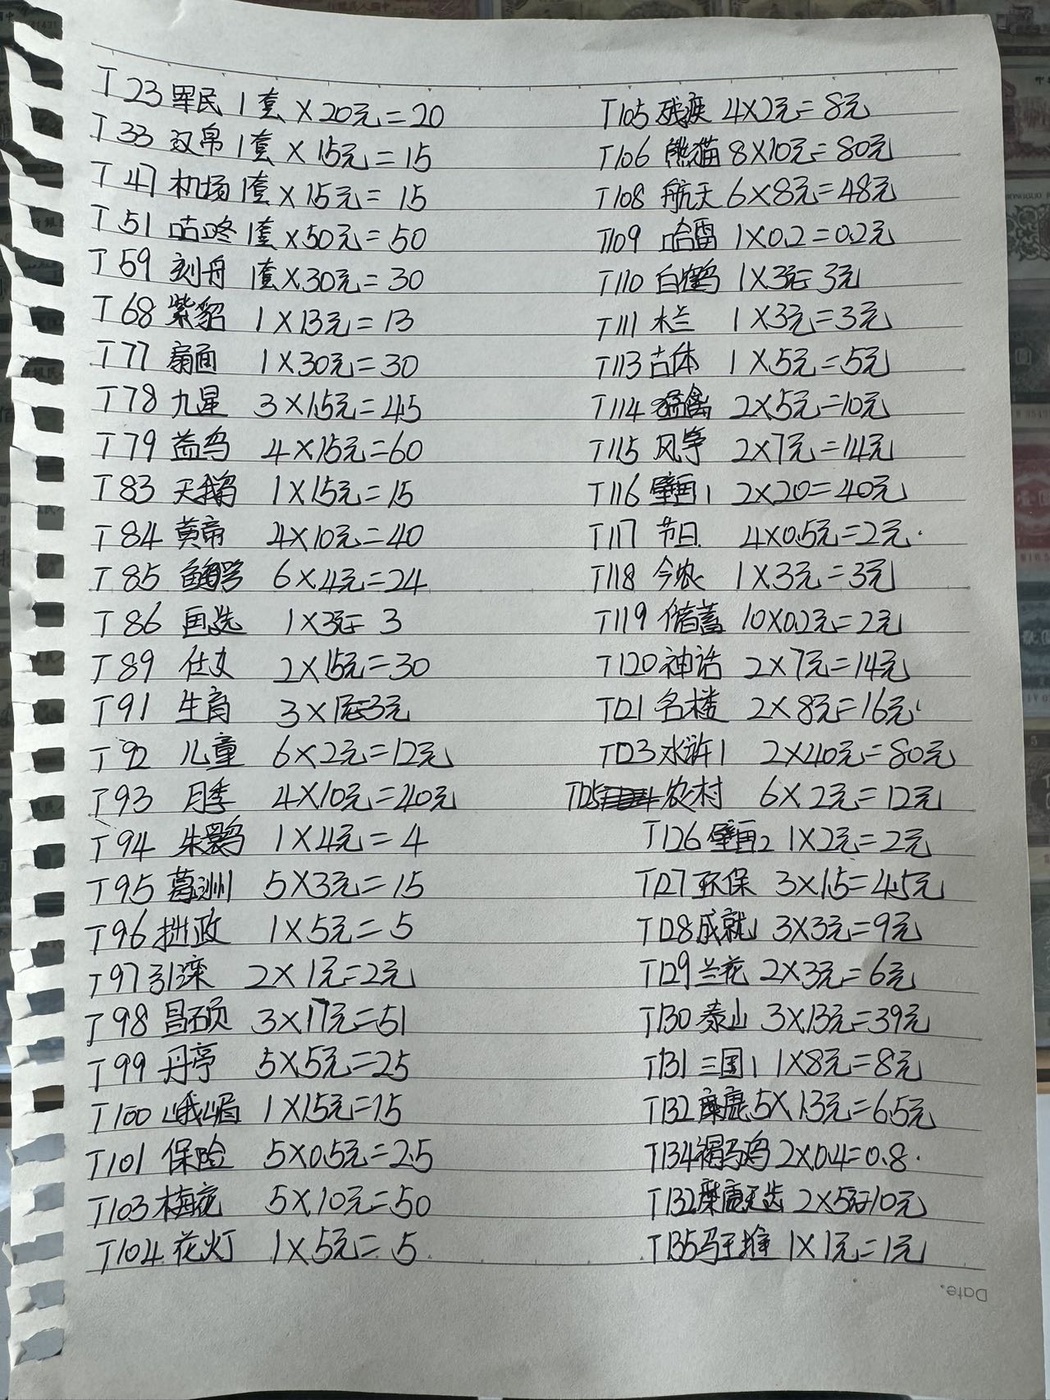 T23 军民 1套 ×20元=20
T33 汉帛 1套 ×15元=15
T47 机场 1套 ×15元=15
T51 咕咚 1套 ×50元=50
T59 刻舟 1套×30元=30
T68 紫貂 1×13元=13
T77 扇面 1×30元=30
T78 九星 3×15元=45
T79 益鸟 4×15元=60
T83 天鹅 1×15元=15
T84 黄帝 4×10元=40
T85 6×4元=24
T86 国选 1×3元= 3
T89 仕女 2×15元=30
T91 生肖 3×1元=3元
T92 儿童 6×2元=12元
T93 月季 4×10元=40元
T94 朱鹮 1×4元=4
T95 葛洲 5×3元=15
T96 拙政 1×5元=5
T97 引滦 2×1元=2元
T98 昌硕 3×17元=51
T99 丹亭 5×5元=25
T100 峨嵋 1×15元=15
T101 保险 5×0.5元=2.5
T103 梅花 5×10元=50
T104 花灯 1×5元=5
T105 残疾 4×2元=8元
T106 熊猫 8×10元=80元
T108 航天 6×8元=48元
T109 哈雷 1×0.2=0.2元
T110 白鹤 1×3元=3元
T111 木兰 1×3元=3元
T113 古体 1×5元=5元
T114 猛禽 2×5元=10元
T115 风筝 2×7元=14元
T116 壁画1 2×20=40元
T117 节日 4×0.5元=2元
T118 今农 1×3元=3元
T119 储蓄 10×0.2元=2元
T120 神话 2×7元=14元
T121 名楼 2×8元=16元
T123 水浒1 2×40元=80元
T125 农村 6×2元=12元
T126 壁画2 1×2元=2元
T127 环保 3×1.5=4.5元
T128 成就 3×3元=9元
T129 兰花 2×3元=6元
T130 泰山 3×13元=39元
T131 三国1 1×8元=8元
T132 麋鹿 5×1.3元=6.5元
T134 褐马鸡 2×0.4=0.8
T132 麋鹿无齿 2×5元=10元
T135 马王堆 1×1元=1元
Date.